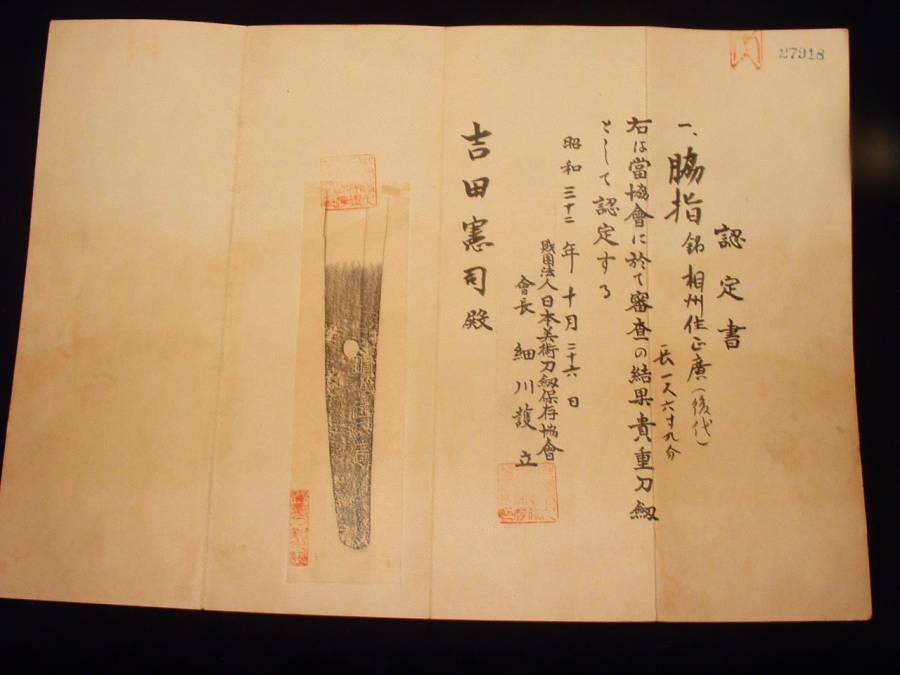 27918
認定書
一、脇指 銘 相州住正廣(後代)
長一尺六寸九分
右は當協會に於て審査の結果貴重刀剱
として認定する
昭和三十二年十月二十六日
財團法人日本美術刀剱保存協會
會長 細川護立
吉田憲司殿